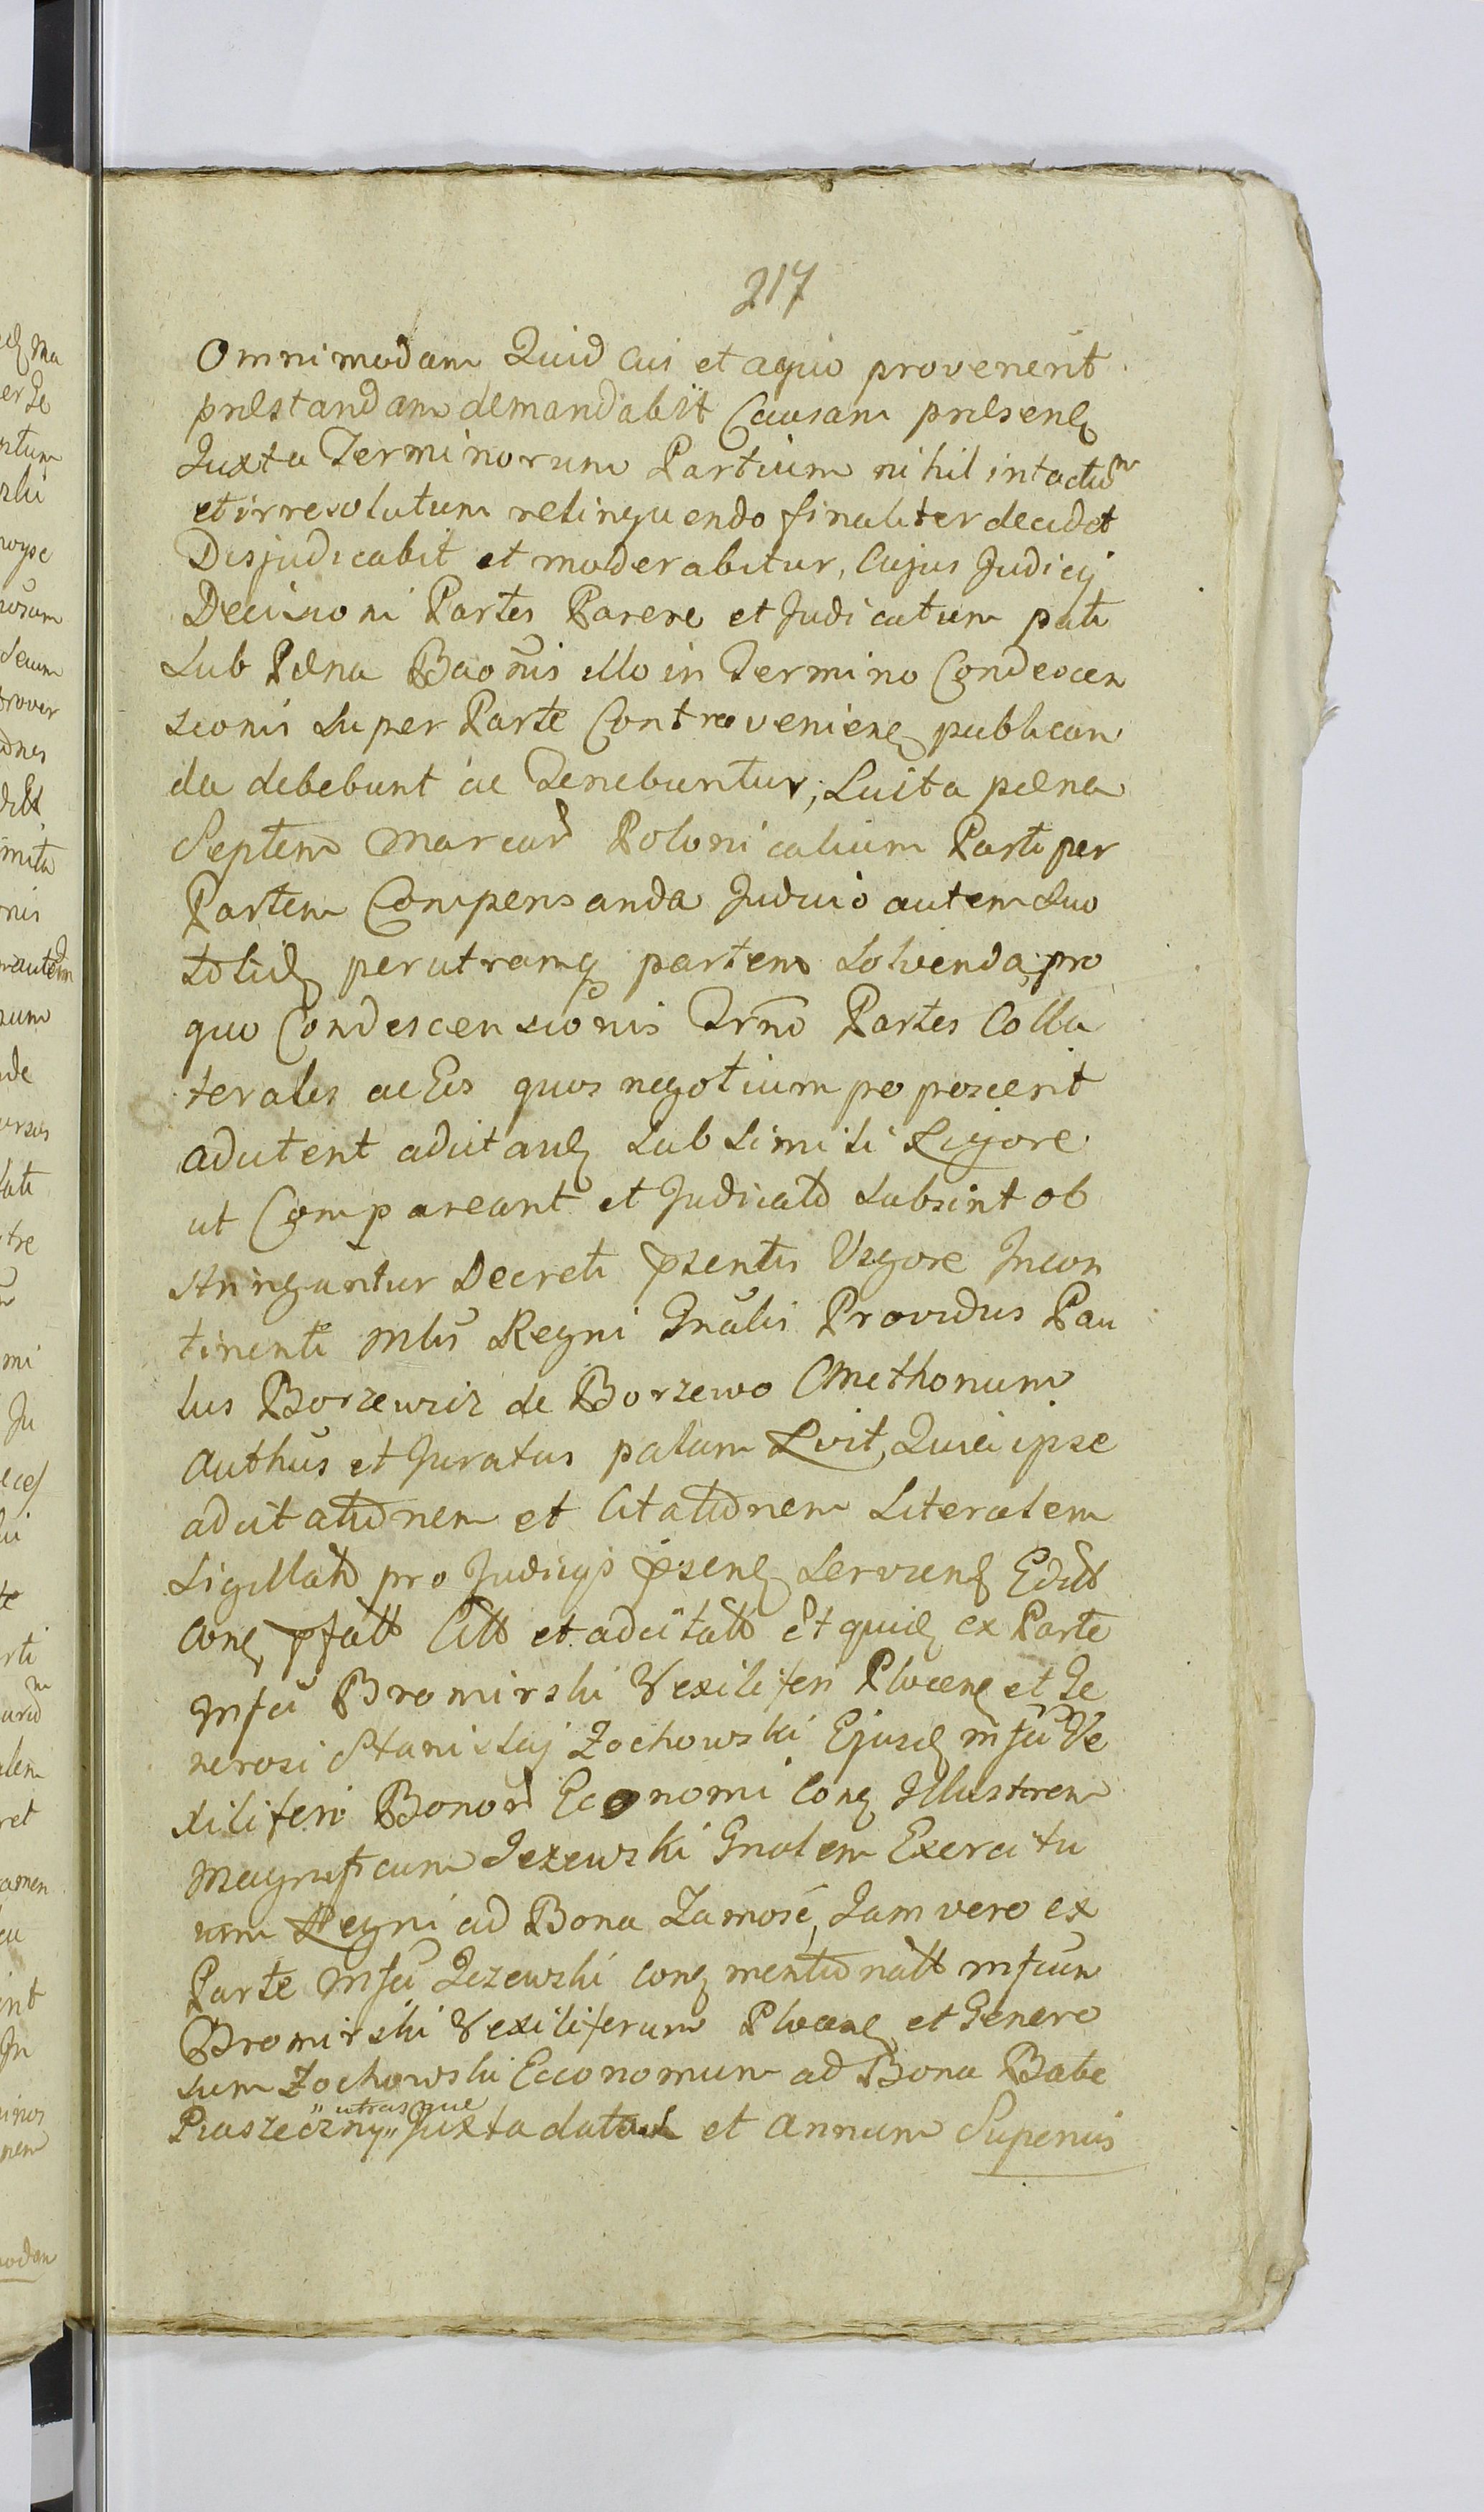 217
Omnimodam Quid cui et a quo provenerit
præstandam demandabit Causam præsenę
Juxta Terminorum Partium nihil intactum
et irresolutum relinquendo finaliter decidet
Disjudicabit et moderabitur, Cujus Judicij
Decisioni Partes Parere et Judicatum pati
Sub Pæna Baõnis illo in Termino Condescen
sionis super Parte Contravenienę publican
da debebunt ac Tenebuntur, Luita pæna
Septem Marcar Polonicalium Parti per
Partem Compensanda Judicio autem Suo
totidę per utramq partem Solvenda, pro
quo Condescensionis Trñno Partes Colla
terales ac Eos quos negotium poposcerit
adcitent adcitanę Sub Simili Rigore
ut Compareant et Judicato Subsint ob
stringuntur Decreti pñsentis Vigore Incon
tinenti Mlis Regni Gnãlis Providus Pau
lus Borzewicz de Borzewo Cmethonum
Authũs et Juratus palam Rvit, Quia ipse
adcitationem et Citationem Literalem
Sigillatõ pro Judicijs pñsenę Servienę Edidit
Conę pfatt Citt et adcitatt Et quidę ex Parte
Mfci Bromirski Vexiliferi Plocenę et Ge
nerosi Stanislaj Zochowski Ejusdę Mfci Ve
xiliferi Bonor Economi Conę Illustrem
Magnificum Jezewski Gnalem Exercitu
um Regni ad Bona Zamość, Jam vero ex
Parte Mfci Jezewski Conę mentionatt Mfcum
Bromirski Vexiliferum Plocenę et Genero
sum Zochowski Ecconomum ad Bona Babe
Piaszeczny " utrasque " Juxta datas et Annum Superius